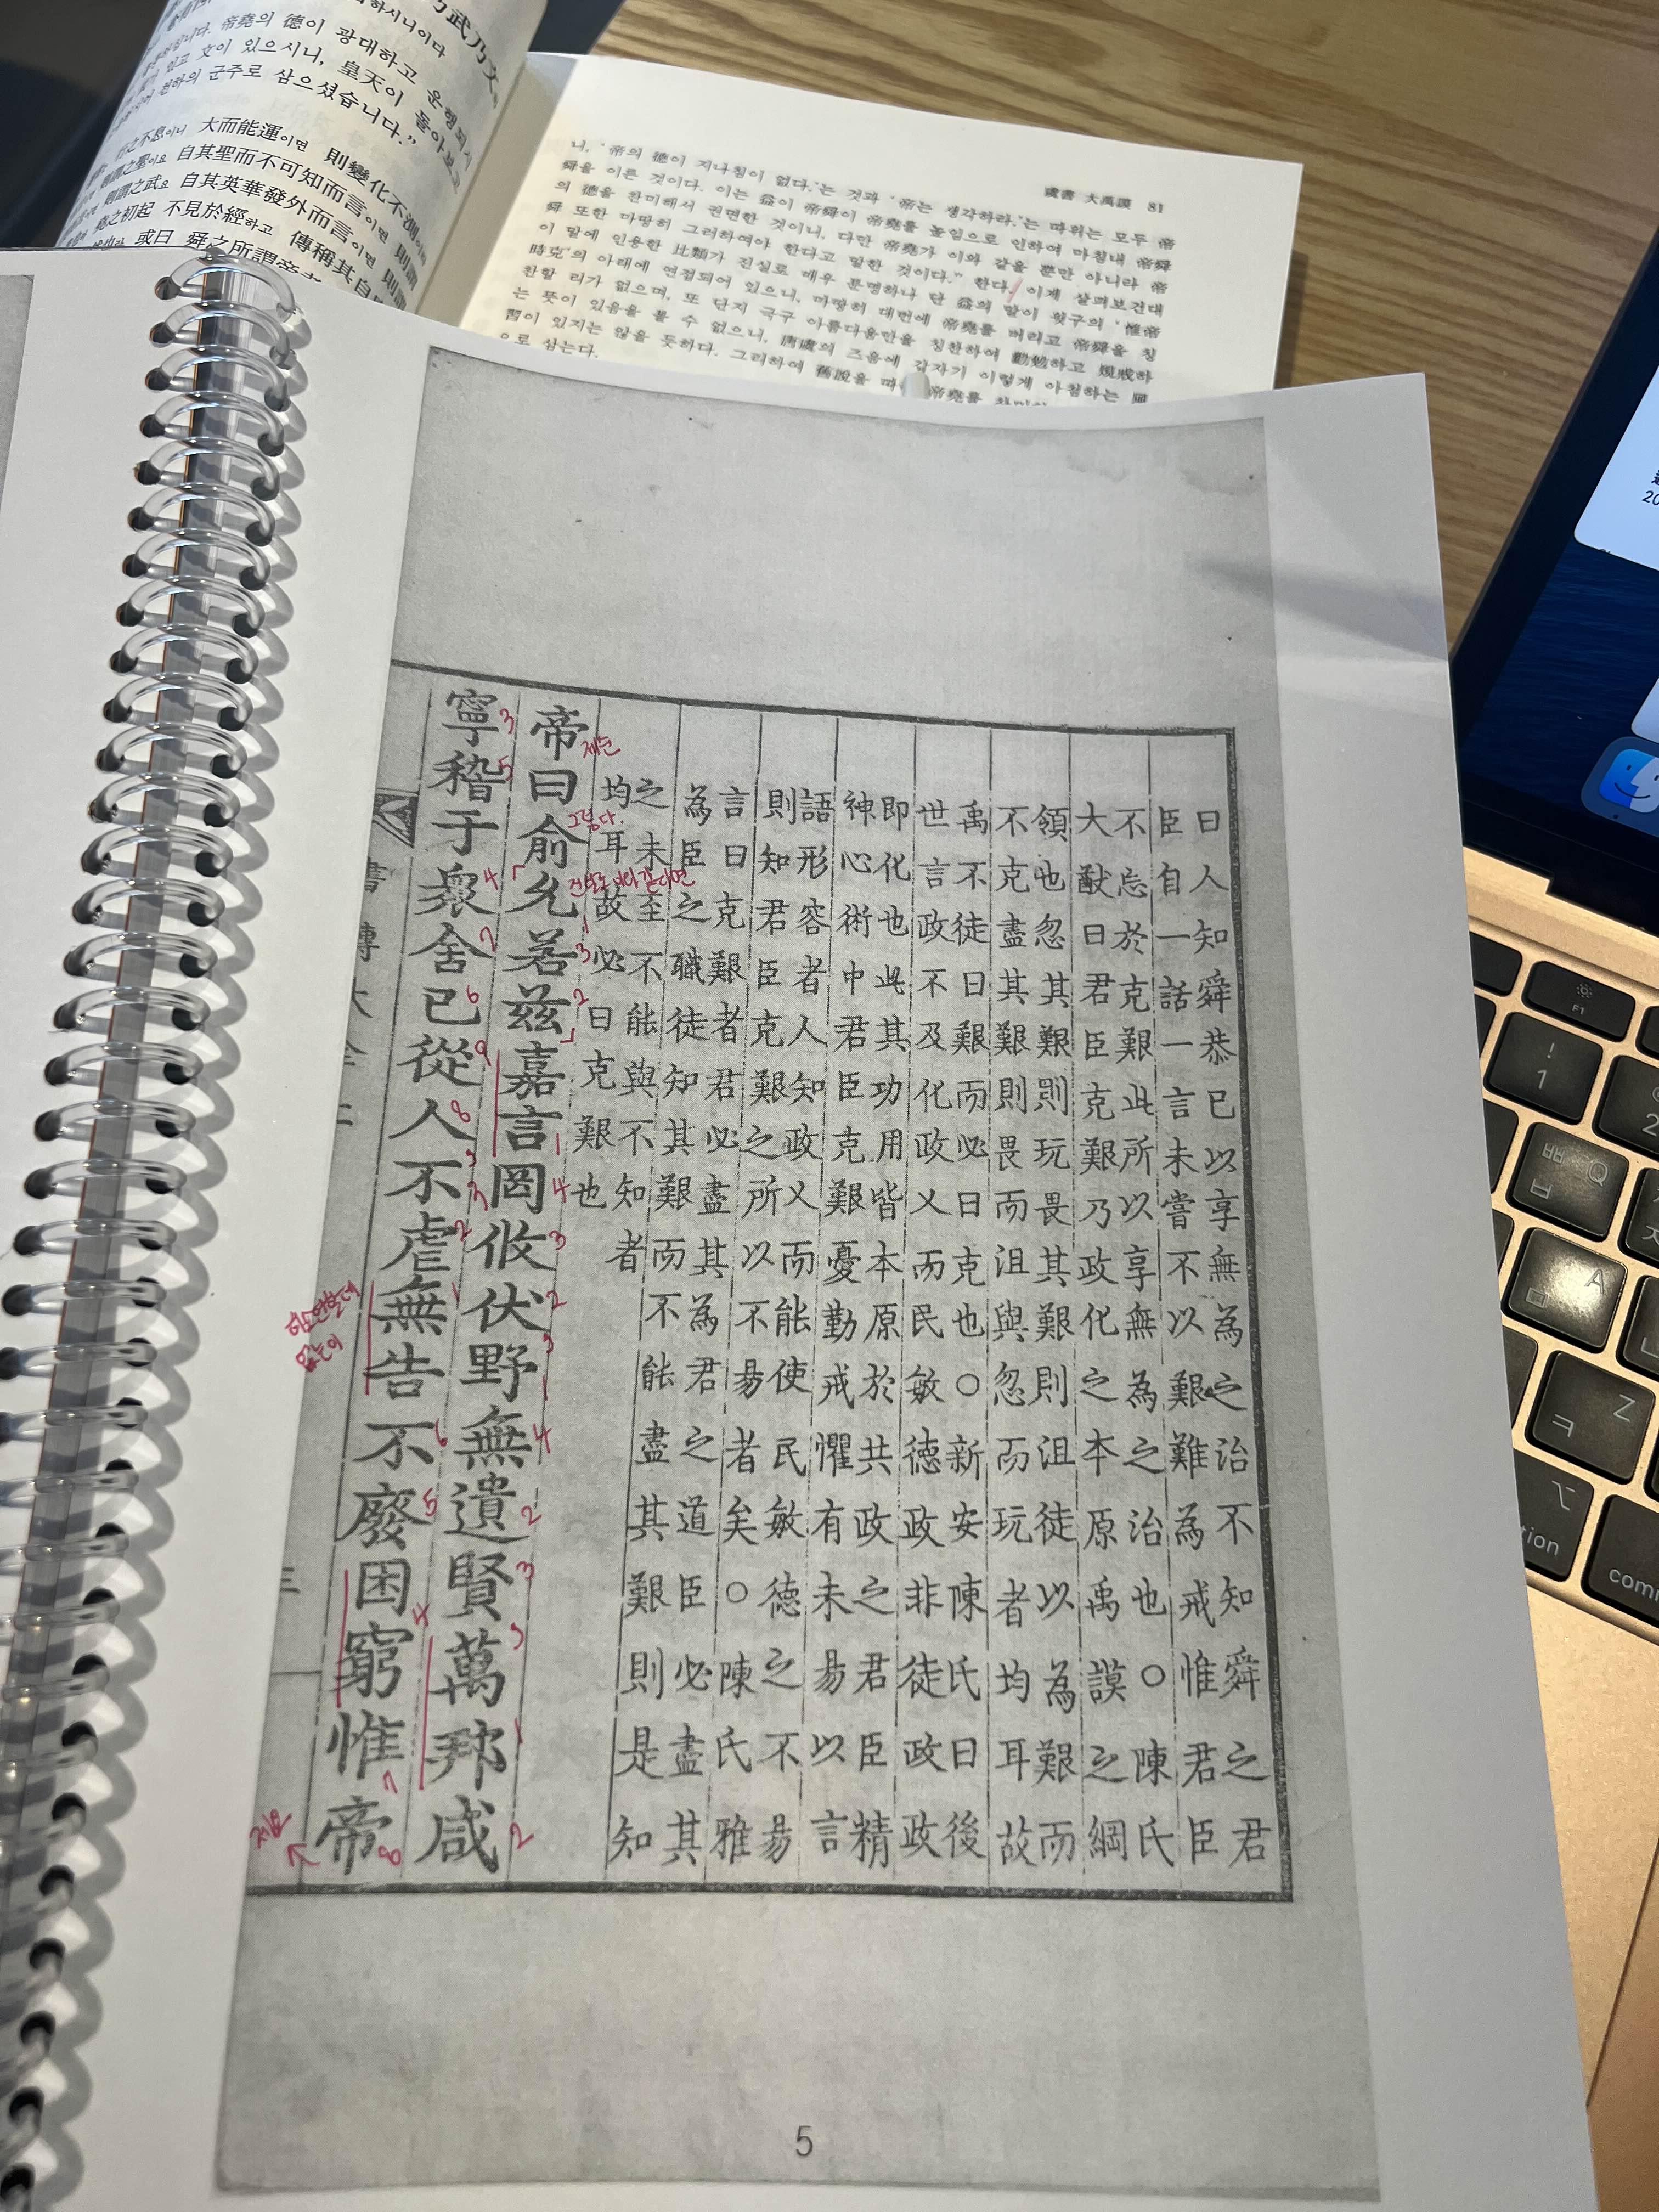 武乃文
하시니이다
帝堯의 德이 광대하고 운행되시
文이 있으시니, 皇天이 돌아보고
천하의 군주로 삼으셨습니다.”
行之不息이니 大而能運이면 則變化不測
謂之聖이요 自其聖而不可知而言이면 則謂
則謂之武요 自其英華發外而言이면 則謂
堯之初起 不見於經하고 傳稱其自
或曰 舜之所謂帝者
虞書 大禹謨 81
니, ‘帝의 德이 지나침이 없다.’는 것과 ‘帝는 생각하라.’는 따위는 모두 帝
舜을 이른 것이다. 이는 益이 帝舜이 帝堯를 높임으로 인하여 마침내 帝舜
의 德을 찬미해서 권면한 것이니, 다만 帝堯가 이와 같을 뿐만 아니라 帝
舜 또한 마땅히 그러하여야 한다고 말한 것이다.” 한다. 이제 살펴보건대
이 말에 인용한 比類가 진실로 매우 분명하나 단 益의 말이 윗구의 ‘惟帝
時克’의 아래에 연접되어 있으니, 마땅히 대번에 帝堯를 버리고 帝舜을 칭
찬할 리가 없으며, 또 단지 극구 아름다움만을 칭찬하여 勸勉하고 規戒하
는 뜻이 있음을 볼 수 없으니, 唐虞의 즈음에 갑자기 이렇게 아첨하는 風
習이 있지는 않을 듯하다. 그리하여 舊說을 따
으로 삼는다.
曰人知舜恭已以享無為之治不知舜之君
臣自一話一言未嘗不以艱難為戒惟君臣
不忘於克艱此所以享無為之治也○陳氏
大猷曰君臣克艱乃政化之本原禹謨之綱
領也忽其艱則玩畏其艱則沮徒以為艱而
不克盡其艱則畏而沮與忽而玩者均耳故
禹不徒曰艱而必曰克也○新安陳氏曰後
世言政不及化政乂而民敏德政非徒政政
即化也此其功用皆本原於共政之君臣精
神心術中君臣克艱憂勤戒懼有未易以言
語形容者人知政乂而能使民敏德之不易
則知君臣克艱之所以不易者矣○陳氏雅
言曰克艱者君必盡其為君之道臣必盡其
為臣之職徒知其艱而不能盡其艱則是知
之未至不能與不知者
均耳故必曰克艱也
帝曰俞允若茲嘉言罔攸伏野無遺賢萬邦咸
제순
그렇다.
진실로 이와 같다면
寧稽于衆舍已從人不虐無告不廢困窮惟帝
하소연할데
없는이
제요
書傳大全
三
5
F1
! 1
2
ㅃ Q ㅂ
A ㅁ
Z ㅋ
tion
comm
20